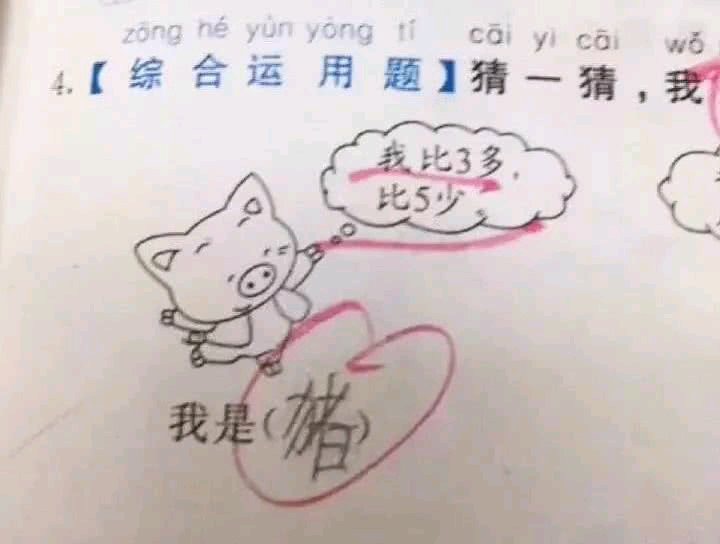 zōng hé yùn yòng tí cāi yi cāi wǒ
4.【综合运用题】猜一猜,我
我比3多,
比5少。
我是(猪)